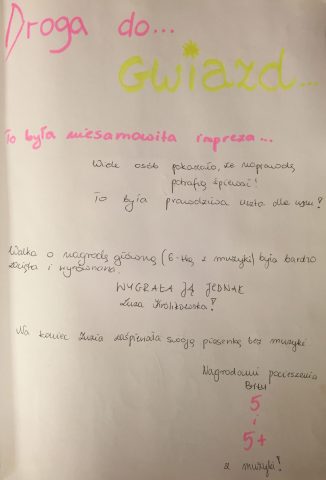 Droga do...
Gwiazd...
To była niesamowita impreza...
Wiele osób pokazało, że naprawdę
potrafią śpiewać!
To była prawdziwa uczta dla uszu!
Walka o nagrodę główną (6-tkę z muzyki) była bardzo
zacięta i wyrównana.
WYGRAŁA JĄ JEDNAK
Zuza Królikowska!
Na koniec Zuzia zaśpiewała swoją piosenkę bez muzyki
Nagrodami pocieszenia
BYŁY
5
i
5+
z muzyki!